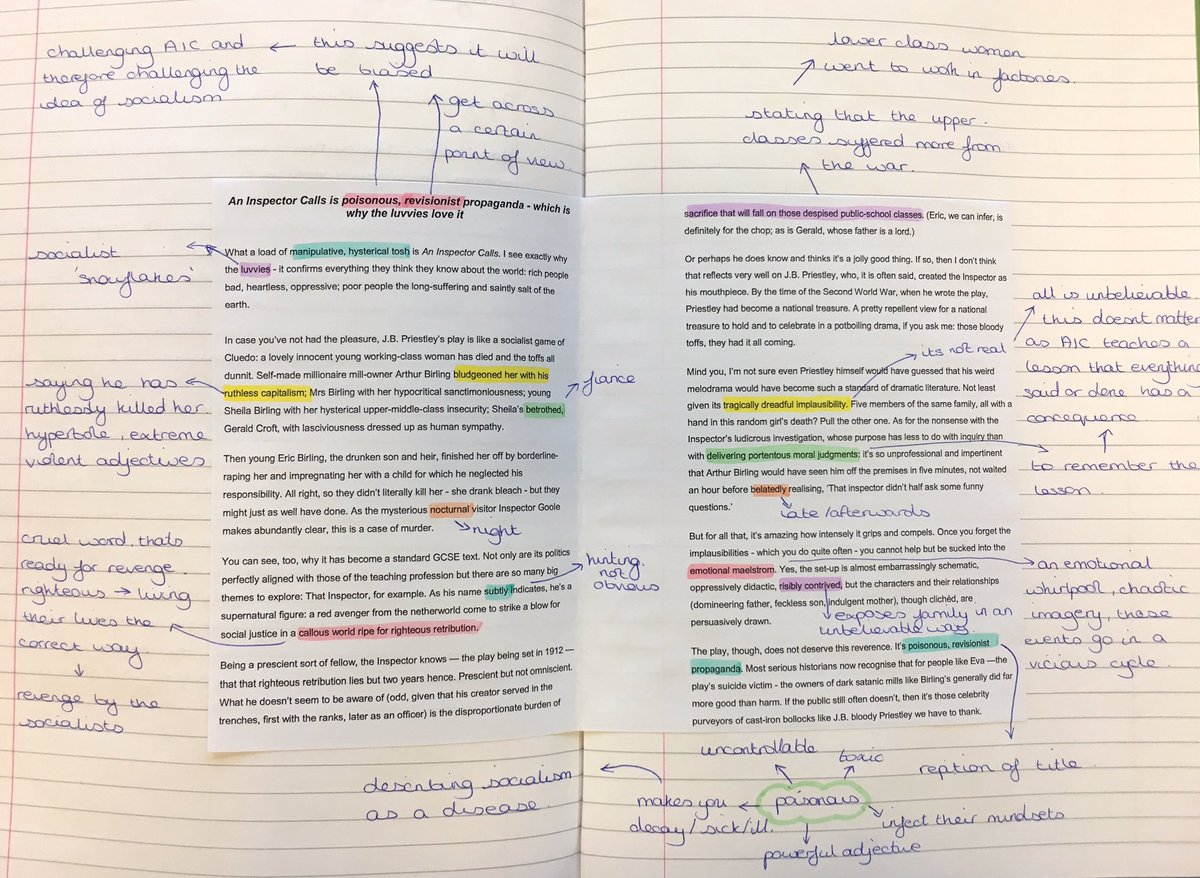 challenging AIC and
therefore challenging the
idea of socialism
this suggests it will
be biased
get across
a certain
point of view.
An Inspector Calls is poisonous, revisionist propaganda - which is
why the luvvies love it
What a load of manipulative, hysterical tosh is An Inspector Calls. I see exactly why
the luvvies - it confirms everything they think they know about the world: rich people
bad, heartless, oppressive; poor people the long-suffering and saintly salt of the
earth.
In case you've not had the pleasure, J.B. Priestley's play is like a socialist game of
Cluedo: a lovely innocent young working-class woman has died and the toffs all
dunnit. Self-made millionaire mill-owner Arthur Birling bludgeoned her with his
ruthless capitalism; Mrs Birling with her hypocritical sanctimoniousness; young
Sheila Birling with her hysterical upper-middle-class insecurity; Sheila's betrothed,
Gerald Croft, with lasciviousness dressed up as human sympathy.
Then young Eric Birling, the drunken son and heir, finished her off by borderline-
raping her and impregnating her with a child for which he neglected his
responsibility. All right, so they didn't literally kill her - she drank bleach - but they
might just as well have done. As the mysterious nocturnal visitor Inspector Goole
makes abundantly clear, this is a case of murder.
You can see, too, why it has become a standard GCSE text. Not only are its politics
perfectly aligned with those of the teaching profession but there are so many big
themes to explore: That Inspector, for example. As his name subtly indicates, he's a
supernatural figure: a red avenger from the netherworld come to strike a blow for
social justice in a callous world ripe for righteous retribution.
Being a prescient sort of fellow, the Inspector knows — the play being set in 1912 —
that that righteous retribution lies but two years hence. Prescient but not omniscient.
What he doesn't seem to be aware of (odd, given that his creator served in the
trenches, first with the ranks, later as an officer) is the disproportionate burden of
socialist
'snowflakes'
saying he has
ruthlessly killed her
hyperbole, extreme
violent adjectives
fiance
night
hinting.
not
obvious
cruel word, thats
ready for revenge.
righteous → living
their lives the
correct way.
revenge by the
socialists
describing socialism
as a disease.
lower class women
went to work in factories.
stating that the upper.
classes suffered more from
the war.
sacrifice that will fall on those despised public-school classes. (Eric, we can infer, is
definitely for the chop; as is Gerald, whose father is a lord.)
Or perhaps he does know and thinks it's a jolly good thing. If so, then I don't think
that reflects very well on J.B. Priestley, who, it is often said, created the Inspector as
his mouthpiece. By the time of the Second World War, when he wrote the play,
Priestley had become a national treasure. A pretty repellent view for a national
treasure to hold and to celebrate in a potboiling drama, if you ask me: those bloody
toffs, they had it all coming.
Mind you, I'm not sure even Priestley himself would have guessed that his weird
melodrama would have become such a standard of dramatic literature. Not least
given its tragically dreadful implausibility. Five members of the same family, all with a
hand in this random girl's death? Pull the other one. As for the nonsense with the
Inspector's ludicrous investigation, whose purpose has less to do with inquiry than
with delivering portentous moral judgments: it's so unprofessional and impertinent
that Arthur Birling would have seen him off the premises in five minutes, not waited
an hour before belatedly realising, 'That inspector didn't half ask some funny
questions.'
But for all that, it's amazing how intensely it grips and compels. Once you forget the
implausibilities - which you do quite often - you cannot help but be sucked into the
emotional maelstrom. Yes, the set-up is almost embarrassingly schematic,
oppressively didactic, risibly contrived, but the characters and their relationships
(domineering father, feckless son, indulgent mother), though clichéd, are
persuasively drawn.
The play, though, does not deserve this reverence. It's poisonous, revisionist
propaganda. Most serious historians now recognise that for people like Eva —the
play's suicide victim - the owners of dark satanic mills like Birling's generally did far
more good than harm. If the public still often doesn't, then it's those celebrity
purveyors of cast-iron bollocks like J.B. bloody Priestley we have to thank.
its not real
late/afterwards
exposes family in an
unbelievable way.
all is unbelievable.
this doesnt matter
as AIC teaches a
lesson that everything
said or done has a
consequence.
to remember the
lesson.
an emotional
whirlpool, chaotic
imagery, these
events go in a
vicious cycle
uncontrollable
toxic
reption of title.
makes you
decay/sick/ill.
poisonous
inject their mindsets
powerful adjective